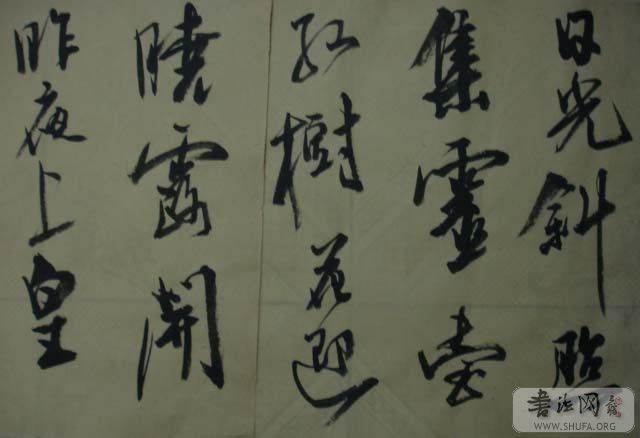 日光斜照
集靈臺
紅樹花迎
曉露開
昨夜上皇
書法网
WWW.SHUFA.ORG